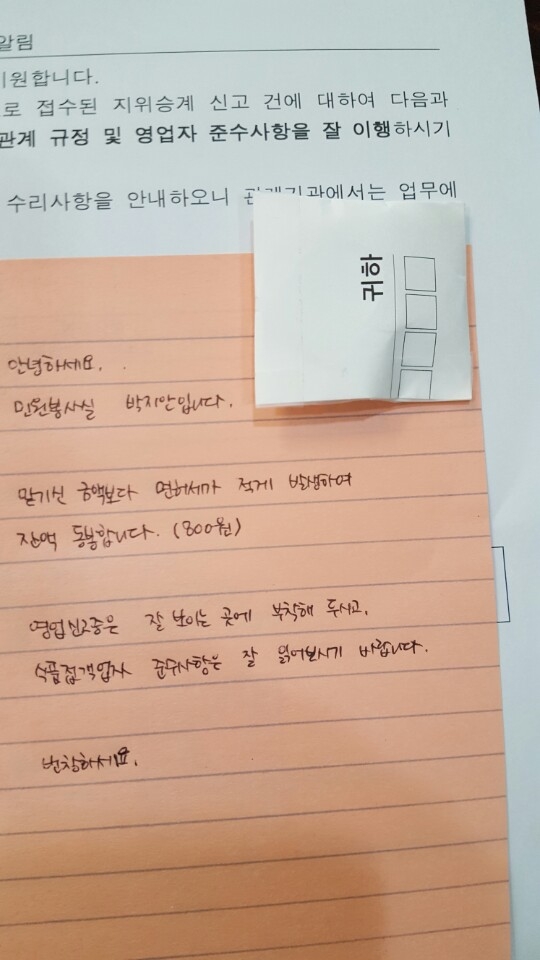 알림
지원합니다.
로 접수된 지위승계 신고 건에 대하여 다음과
관계 규정 및 영업자 준수사항을 잘 이행하시기
수리사항을 안내하오니 관계기관에서는 업무에
귀하
안녕하세요.
민원봉사실 박지안입니다.
맡기신 금액보다 면허세가 적게 발생하여
잔액 동봉합니다. (800원)
영업신고증은 잘 보이는 곳에 부착해 두시고,
식품접객업자 준수사항은 잘 읽어보시기 바랍니다.
번창하세요.